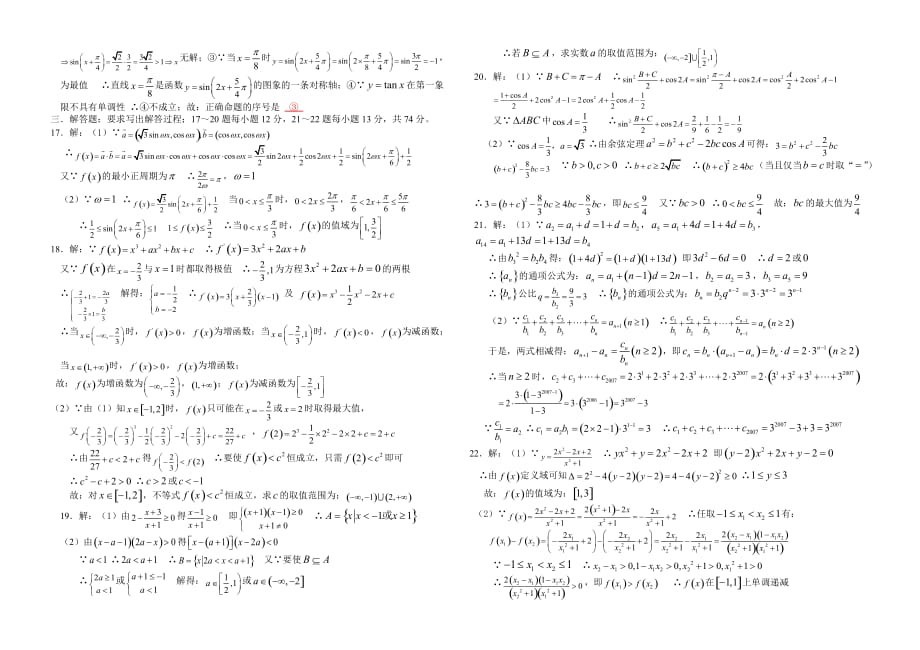 ⇒sin(x+π/4)=√2/2·3/2=3√2/4>1⇒x无解；③∵当x=π/8时y=sin(2x+5/4π)=sin(2π/8+5/4π)=sin 3π/2=-1，
为最值 ∴直线x=π/8是函数y=sin(2x+5/4π)的图象的一条对称轴；④∵y=tan x在第一象
限不具有单调性 ∴④不成立；故：正确命题的序号是 ③
三．解答题：要求写出解答过程；17～20题每小题12分，21～22题每小题13分，共74分。
17．解：（1）∵a=(√3sin ωx,cos ωx) b=(cos ωx,cos ωx)
∴f(x)=a·b=√3sin ωx·cos ωx+cos ωx·cos ωx=√3/2 sin2ωx+1/2 cos2ωx+1/2=sin(2ωx+π/6)+1/2
又∵f(x)的最小正周期为π ∴2π/2ω=π，ω=1
（2）∵ω=1 ∴f(x)=√3/2 sin(2x+π/6)+1/2 当0<x≤π/3时，0<2x≤2π/3，π/6<2x+π/6≤5π/6
∴1/2≤sin(2x+π/6)≤1 1≤f(x)≤3/2 ∴当0<x≤π/3时，f(x)的值域为[1,3/2]
18．解：∵f(x)=x³+ax²+bx+c ∴f'(x)=3x²+2ax+b
又∵f(x)在x=-2/3与x=1时都取得极值 ∴-2/3,1为方程3x²+2ax+b=0的两根
∴{-2/3+1=-2a/3 -2/3×1=b/3 解得：{a=-1/2 b=-2 ∴f'(x)=3(x+2/3)(x-1) 及 f(x)=x³-1/2x²-2x+c
∴当x∈(-∞,-2/3)时，f'(x)>0，f(x)为增函数；当x∈(-2/3,1)时，f'(x)<0，f(x)为减函数；
当x∈(1,+∞)时，f'(x)>0，f(x)为增函数；
故：f(x)为增函数为(-∞,-2/3)，(1,+∞)；f(x)为减函数为[-2/3,1]
（2）∵由（1）知x∈[-1,2]时，f(x)只可能在x=-2/3或x=2时取得最大值，
又f(-2/3)=(-2/3)³-1/2(-2/3)²-2(-2/3)+c=22/27+c，f(2)=2³-1/2×2²-2×2+c=2+c
∴由22/27+c<2+c得f(-2/3)<f(2) ∴要使f(x)<c²恒成立，只需f(2)<c²即可
∴c²-c+2>0 ∴c>2或c<1
故：对x∈[-1,2]，不等式f(x)<c²恒成立，求c的取值范围为：(-∞,-1)∪(2,+∞)
19．解：（1）由2-(x+3)/(x+1)≥0得(x-1)/(x+1)≥0 即{(x+1)(x-1)≥0 x+1≠0 ∴A={x|x<-1或x≥1}
（2）由(x-a-1)(2a-x)>0得[x-(a+1)](x-2a)<0
∵a<1 ∴2a<a+1 ∴B={x|2a<x<a+1} 又∵要使B⊆A
∴{2a≥1 a<1或{a+1≤-1 a<1 解得：a∈[1/2,1)或a∈(-∞,-2]
∴若B⊆A，求实数a的取值范围为：(-∞,-2]∪[1/2,1)
20．解：（1）∵B+C=π-A ∴sin²(B+C)/2+cos2A=sin²(π/2-A/2)+cos2A=cos²A/2+2cos²A-1
=(1+cosA)/2+2cos²A-1=2cos²A+1/2cosA-1/2
又∵△ABC中cosA=1/3 ∴sin²(B+C)/2+cos2A=2/9+1/6-1/2=-1/9
（2）∵cosA=1/3，a=√3 ∴由余弦定理a²=b²+c²-2bc cosA可得：3=b²+c²-2/3bc
(b+c)²-8/3bc=3 ∵b>0,c>0 ∴b+c≥2√bc ∴(b+c)²≥4bc（当且仅当b=c时取“=”）
∴3=(b+c)²-8/3bc≥4bc-8/3bc，即bc≤9/4 又∵bc>0 ∴0<bc≤9/4 故：bc的最大值为9/4
21．解：（1）∵a₂=a₁+d=1+d=b₂，a₅=a₁+4d=1+4d=b₃，
a₁₄=a₁+13d=1+13d=b₄
∴由b₃²=b₂b₄得：(1+4d)²=(1+d)(1+13d) 即3d²-6d=0 ∴d=2或0
∴{aₙ}的通项公式为：aₙ=a₁+(n-1)d=2n-1，b₂=a₂=3，b₃=a₅=9
∴{bₙ}公比q=b₃/b₂=9/3=3 ∴{bₙ}的通项公式为：bₙ=b₂qⁿ⁻²=3·3ⁿ⁻²=3ⁿ⁻¹
（2）∵c₁/b₁+c₂/b₂+c₃/b₃+⋯+cₙ/bₙ=aₙ₊₁(n≥1) ∴c₁/b₁+c₂/b₂+c₃/b₃+⋯+cₙ₋₁/bₙ₋₁=aₙ(n≥2)
于是，两式相减得：aₙ₊₁-aₙ=cₙ/bₙ(n≥2)，即cₙ=bₙ(aₙ₊₁-aₙ)=bₙ·d=2·3ⁿ⁻¹(n≥2)
∴当n≥2时，c₂+c₃+⋯+c₂₀₀₇=2·3¹+2·3²+2·3³+⋯+2·3²⁰⁰⁷=2·(3¹+3²+3³+⋯+3²⁰⁰⁷)
=2·3(1-3²⁰⁰⁶)/(1-3)=3·(3²⁰⁰⁶-1)=3²⁰⁰⁷-3
∵c₁/b₁=a₂ ∴c₁=a₂b₁=(2×2-1)·3¹⁻¹=3 ∴c₁+c₂+c₃+⋯+c₂₀₀₇=3²⁰⁰⁷-3+3=3²⁰⁰⁷
22．解：（1）∵y=(2x²-2x+2)/(x²+1) ∴yx²+y=2x²-2x+2 即(y-2)x²+2x+y-2=0
∴由f(x)定义域可知△=2²-4(y-2)(y-2)=4-4(y-2)²≥0 ∴1≤y≤3
故：f(x)的值域为：[1,3]
（2）∵f(x)=(2x²-2x+2)/(x²+1)=(2(x²+1)-2x)/(x²+1)=2-2x/(x²+1) ∴任取-1≤x₁<x₂≤1有：
f(x₁)-f(x₂)=(2-2x₁/(x₁²+1))-(2-2x₂/(x₂²+1))=2x₂/(x₂²+1)-2x₁/(x₁²+1)=2(x₂-x₁)(1-x₁x₂)/((x₂²+1)(x₁²+1))
∵-1≤x₁<x₂≤1 ∴x₂-x₁>0,1-x₁x₂>0,x₂²+1>0,x₁²+1>0
∴2(x₂-x₁)(1-x₁x₂)/((x₂²+1)(x₁²+1))>0，即f(x₁)>f(x₂) ∴f(x)在[-1,1]上单调递减